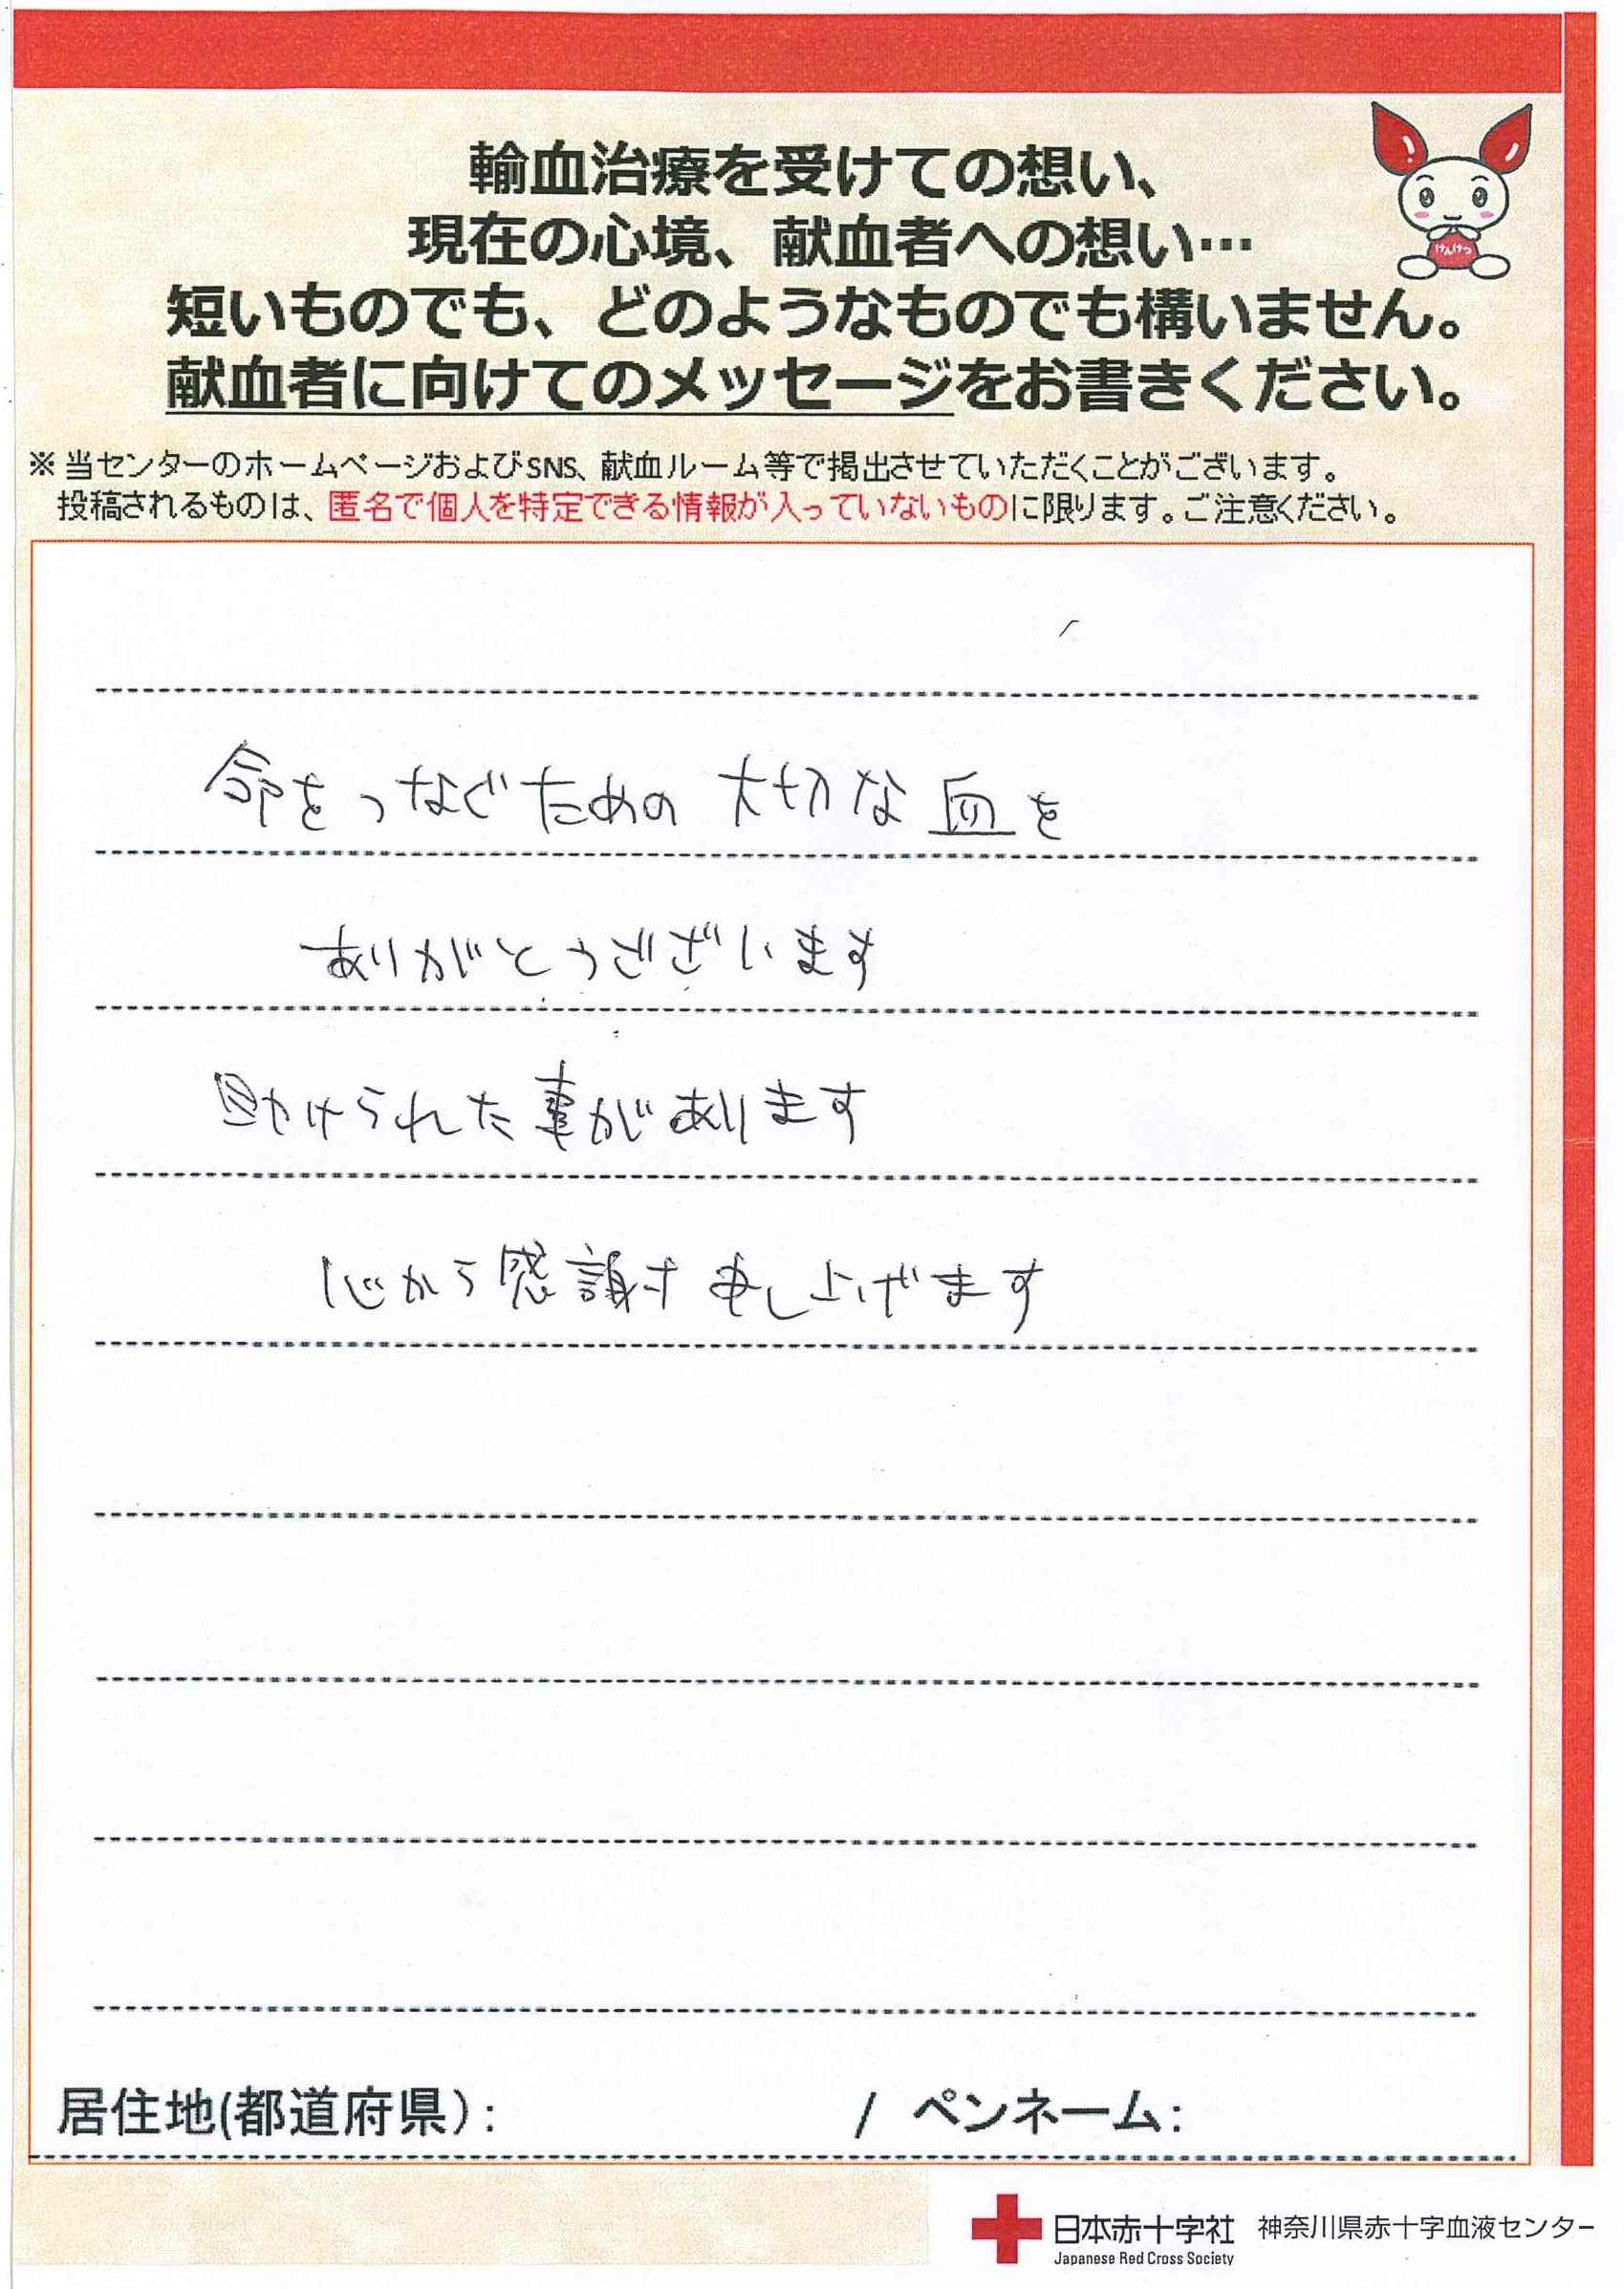 輸血治療を受けての想い、
現在の心境、献血者への想い…
短いものでも、どのようなものでも構いません。
献血者に向けてのメッセージをお書きください。
けんけつ
※当センターのホームページおよびSNS、献血ルーム等で掲出させていただくことがございます。
投稿されるものは、匿名で個人を特定できる情報が入っていないものに限ります。ご注意ください。
命をつなぐための大切な血を
ありがとうございます
助けられた事があります
心から感謝申し上げます
居住地(都道府県): / ペンネーム:
日本赤十字社 神奈川県赤十字血液センター
Japanese Red Cross Society